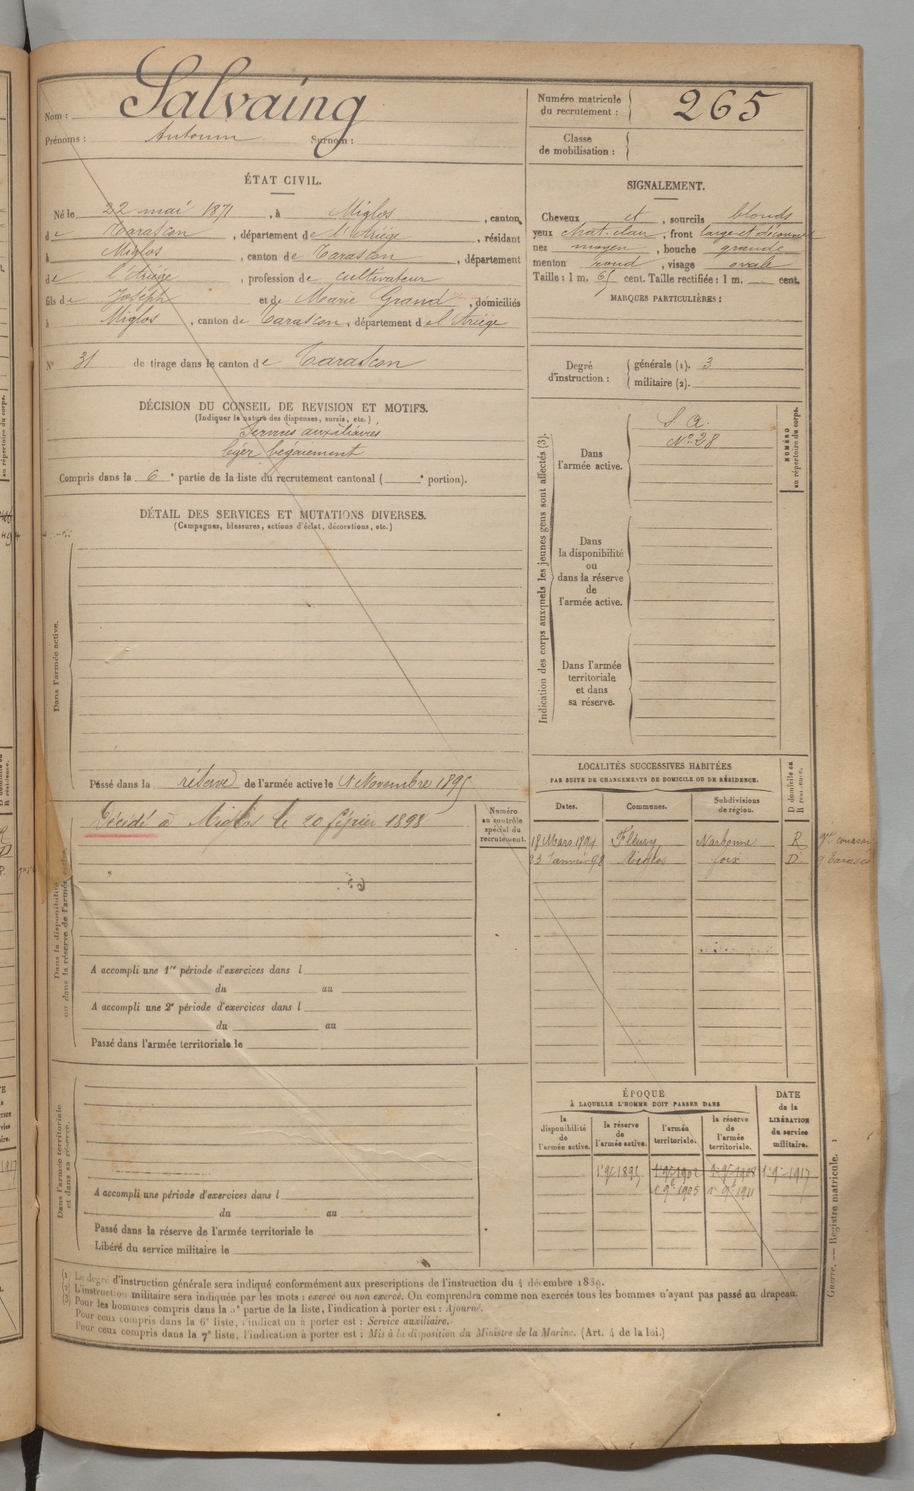 Nom : Salvaing
Prénoms : Antonin Surnom :
Numéro matricule du recrutement : 265
Classe de mobilisation :
ÉTAT CIVIL.
Né le 22 mai 1871, à Miglos, canton
de Tarascon, département de l'Ariège, résidant
à Miglos, canton de Tarascon, département
de l'Ariège, profession de cultivateur
fils de Joseph et de Marie Grand, domiciliés
à Miglos, canton de Tarascon, département de l'Ariège
N° 31 de tirage dans le canton de Tarascon
SIGNALEMENT.
Cheveux et, sourcils blonds
yeux chat. clair, front large et découvert
nez moyen, bouche grande
menton rond, visage ovale
Taille : 1 m. 65 cent. Taille rectifiée : 1 m. cent.
MARQUES PARTICULIÈRES :
Degré d'instruction :
générale (1). 3
militaire (2).
DÉCISION DU CONSEIL DE REVISION ET MOTIFS.
(Indiquer la nature des dispenses, sursis, etc.)
Services auxiliaires
léger bégaiement
Compris dans la 6e partie de la liste du recrutement cantonal ( e portion).
DÉTAIL DES SERVICES ET MUTATIONS DIVERSES.
(Campagnes, blessures, actions d'éclat, décorations, etc.)
Dans l'armée active.
Passé dans la réserve de l'armée active le 1 Novembre 1895
Indication des corps auxquels les jeunes gens sont affectés (3).
NUMÉRO au répertoire du corps.
Dans l'armée active.
S. a.
N° 28
Dans la disponibilité ou dans la réserve de l'armée active.
Dans l'armée territoriale et dans sa réserve.
Dans la disponibilité ou dans la réserve de l'armée active.
Décédé à Miglos le 20 février 1898
Numéro au contrôle spécial du recrutement.
A accompli une 1re période d'exercices dans l
du au
A accompli une 2e période d'exercices dans l
du au
Passé dans l'armée territoriale le
LOCALITÉS SUCCESSIVES HABITÉES
PAR SUITE DE CHANGEMENTS DE DOMICILE OU DE RÉSIDENCE.
D domicile ou R résidence.
Dates. Communes. Subdivisions de région.
18 Mars 1894 Fleury Narbonne R
23 Janvier 98 Miglos foix D.
Dans l'armée territoriale et dans sa réserve.
A accompli une période d'exercices dans l
du au
Passé dans la réserve de l'armée territoriale le
Libéré du service militaire le
ÉPOQUE
À LAQUELLE L'HOMME DOIT PASSER DANS
DATE de la LIBÉRATION du service militaire.
la disponibilité de l'armée active. la réserve de l'armée active. l'armée territoriale. la réserve de l'armée territoriale.
1er 9bre 1895 1er 9bre 1902 1er 9bre 1908 1er 9bre 1917
1er 9bre 1905 1er 9bre 1911
(1) Le degré d'instruction générale sera indiqué conformément aux prescriptions de l'instruction du 4 décembre 1889.
(2) L'instruction militaire sera indiquée par les mots : exercé ou non exercé. On comprendra comme non exercés tous les hommes n'ayant pas passé au drapeau.
(3) Pour les hommes compris dans la 5e partie de la liste, l'indication à porter est : Ajourné.
Pour ceux compris dans la 6e liste, l'indication à porter est : Service auxiliaire.
Pour ceux compris dans la 7e liste, l'indication à porter est : Mis à la disposition du Ministre de la Marine. (Art. 4 de la loi.)
Guerre. — Registre matricule.